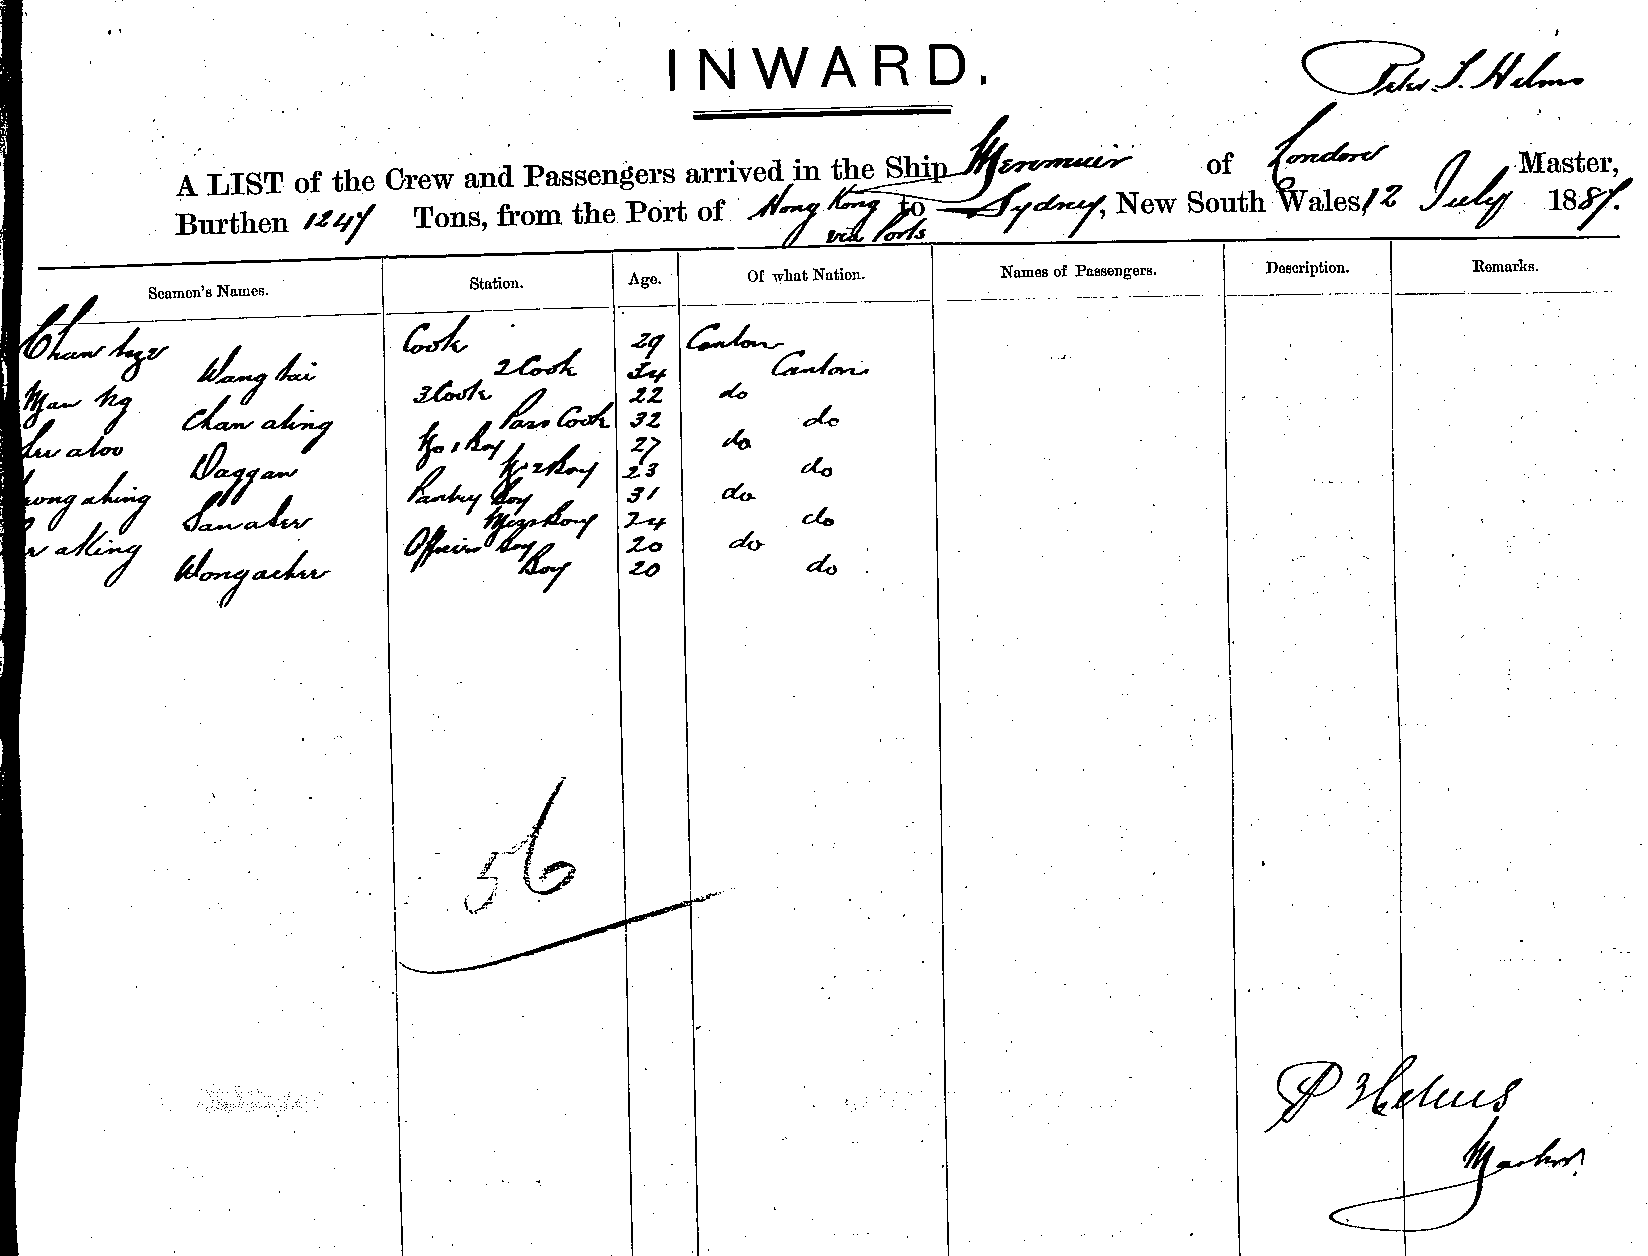 INWARD.
Peter S. Helms
A LIST of the Crew and Passengers arrived in the Ship Menmuir of London Master,
Burthen 1247 Tons, from the Port of Hong Kong to Sydney, New South Wales, 12 July 1887.
via Ports
Seamen's Names. Station. Age. Of what Nation. Names of Passengers. Description. Remarks.
Chan Cook 29 Canton
Wang tai 2 Cook 34 Canton
Man Ng 3 Cook 22 do
Chan aling Cook 32 do
aloo No 1 Boy 27 do
Daggan No 2 Boy 23 do
ong ahing Pantry Boy 31 do
Boy 24 do
aking Officers Boy 20 do
Boy 20 do
56
P Helms
Master.